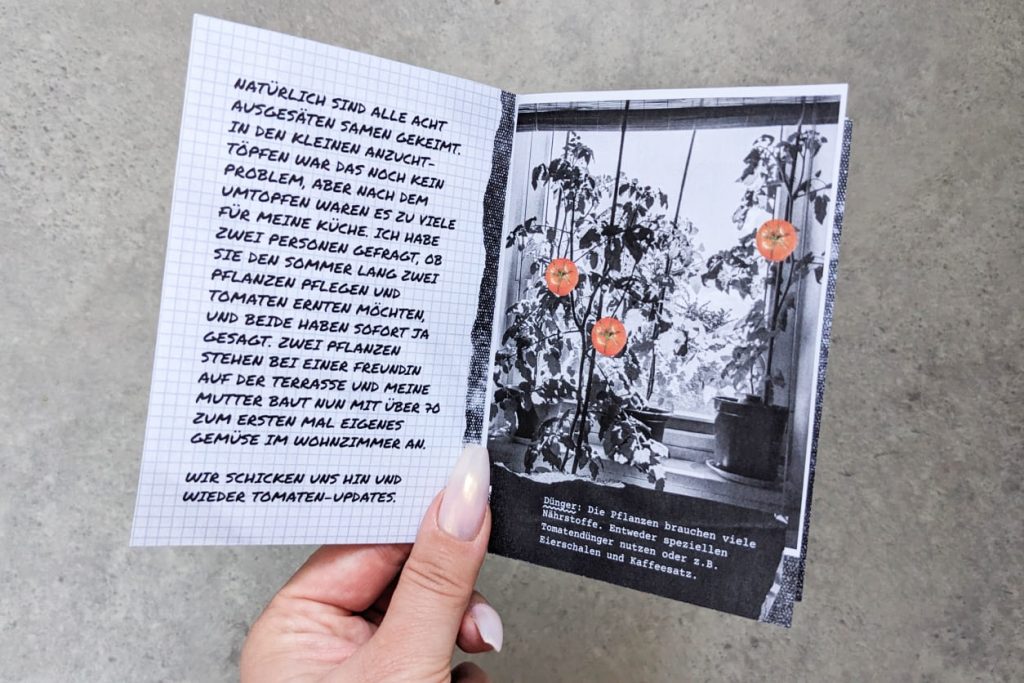 NATÜRLICH SIND ALLE ACHT
AUSGESÄTEN SAMEN GEKEIMT.
IN DEN KLEINEN ANZUCHT-
TÖPFEN WAR DAS NOCH KEIN
PROBLEM, ABER NACH DEM
UMTOPFEN WAREN ES ZU VIELE
FÜR MEINE KÜCHE. ICH HABE
ZWEI PERSONEN GEFRAGT, OB
SIE DEN SOMMER LANG ZWEI
PFLANZEN PFLEGEN UND
TOMATEN ERNTEN MÖCHTEN,
UND BEIDE HABEN SOFORT JA
GESAGT. ZWEI PFLANZEN
STEHEN BEI EINER FREUNDIN
AUF DER TERRASSE UND MEINE
MUTTER BAUT NUN MIT ÜBER 70
ZUM ERSTEN MAL EIGENES
GEMÜSE IM WOHNZIMMER AN.
WIR SCHICKEN UNS HIN UND
WIEDER TOMATEN-UPDATES.
Dünger: Die Pflanzen brauchen viele
Nährstoffe. Entweder speziellen
Tomatendünger nutzen oder z.B.
Eierschalen und Kaffeesatz.